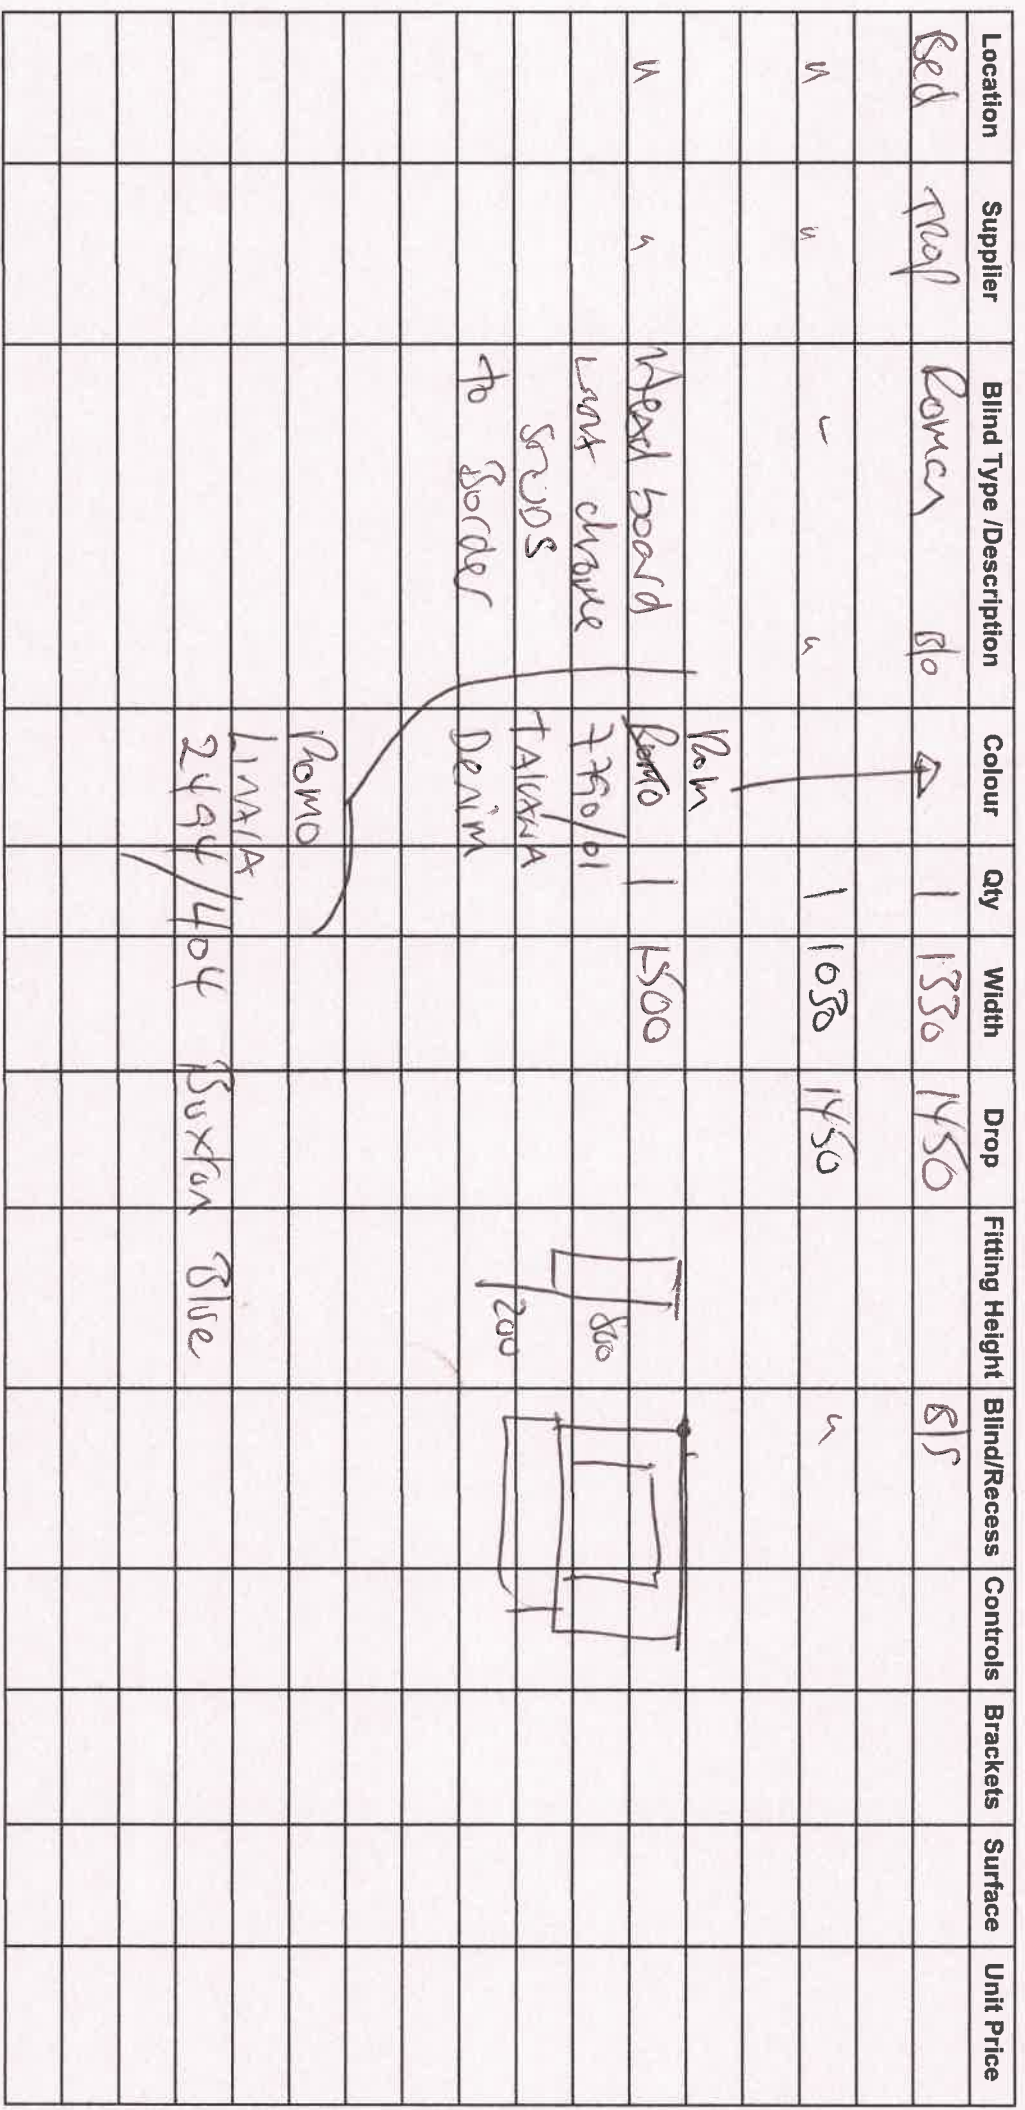 Location Supplier Blind Type /Description Colour Qty Width Drop Fitting Height Blind/Recess Controls Brackets Surface Unit Price
Bed Trop Roman B/o 1 1330 1450 B/S
" " " " 1 1050 1450 "
Rom
" " Head board Romo 1 1500
Want chrome 7790/01 800
STUDS TAKAWA 200
to Border Denim
Romo
Linara
2494/404 Buxton Blue